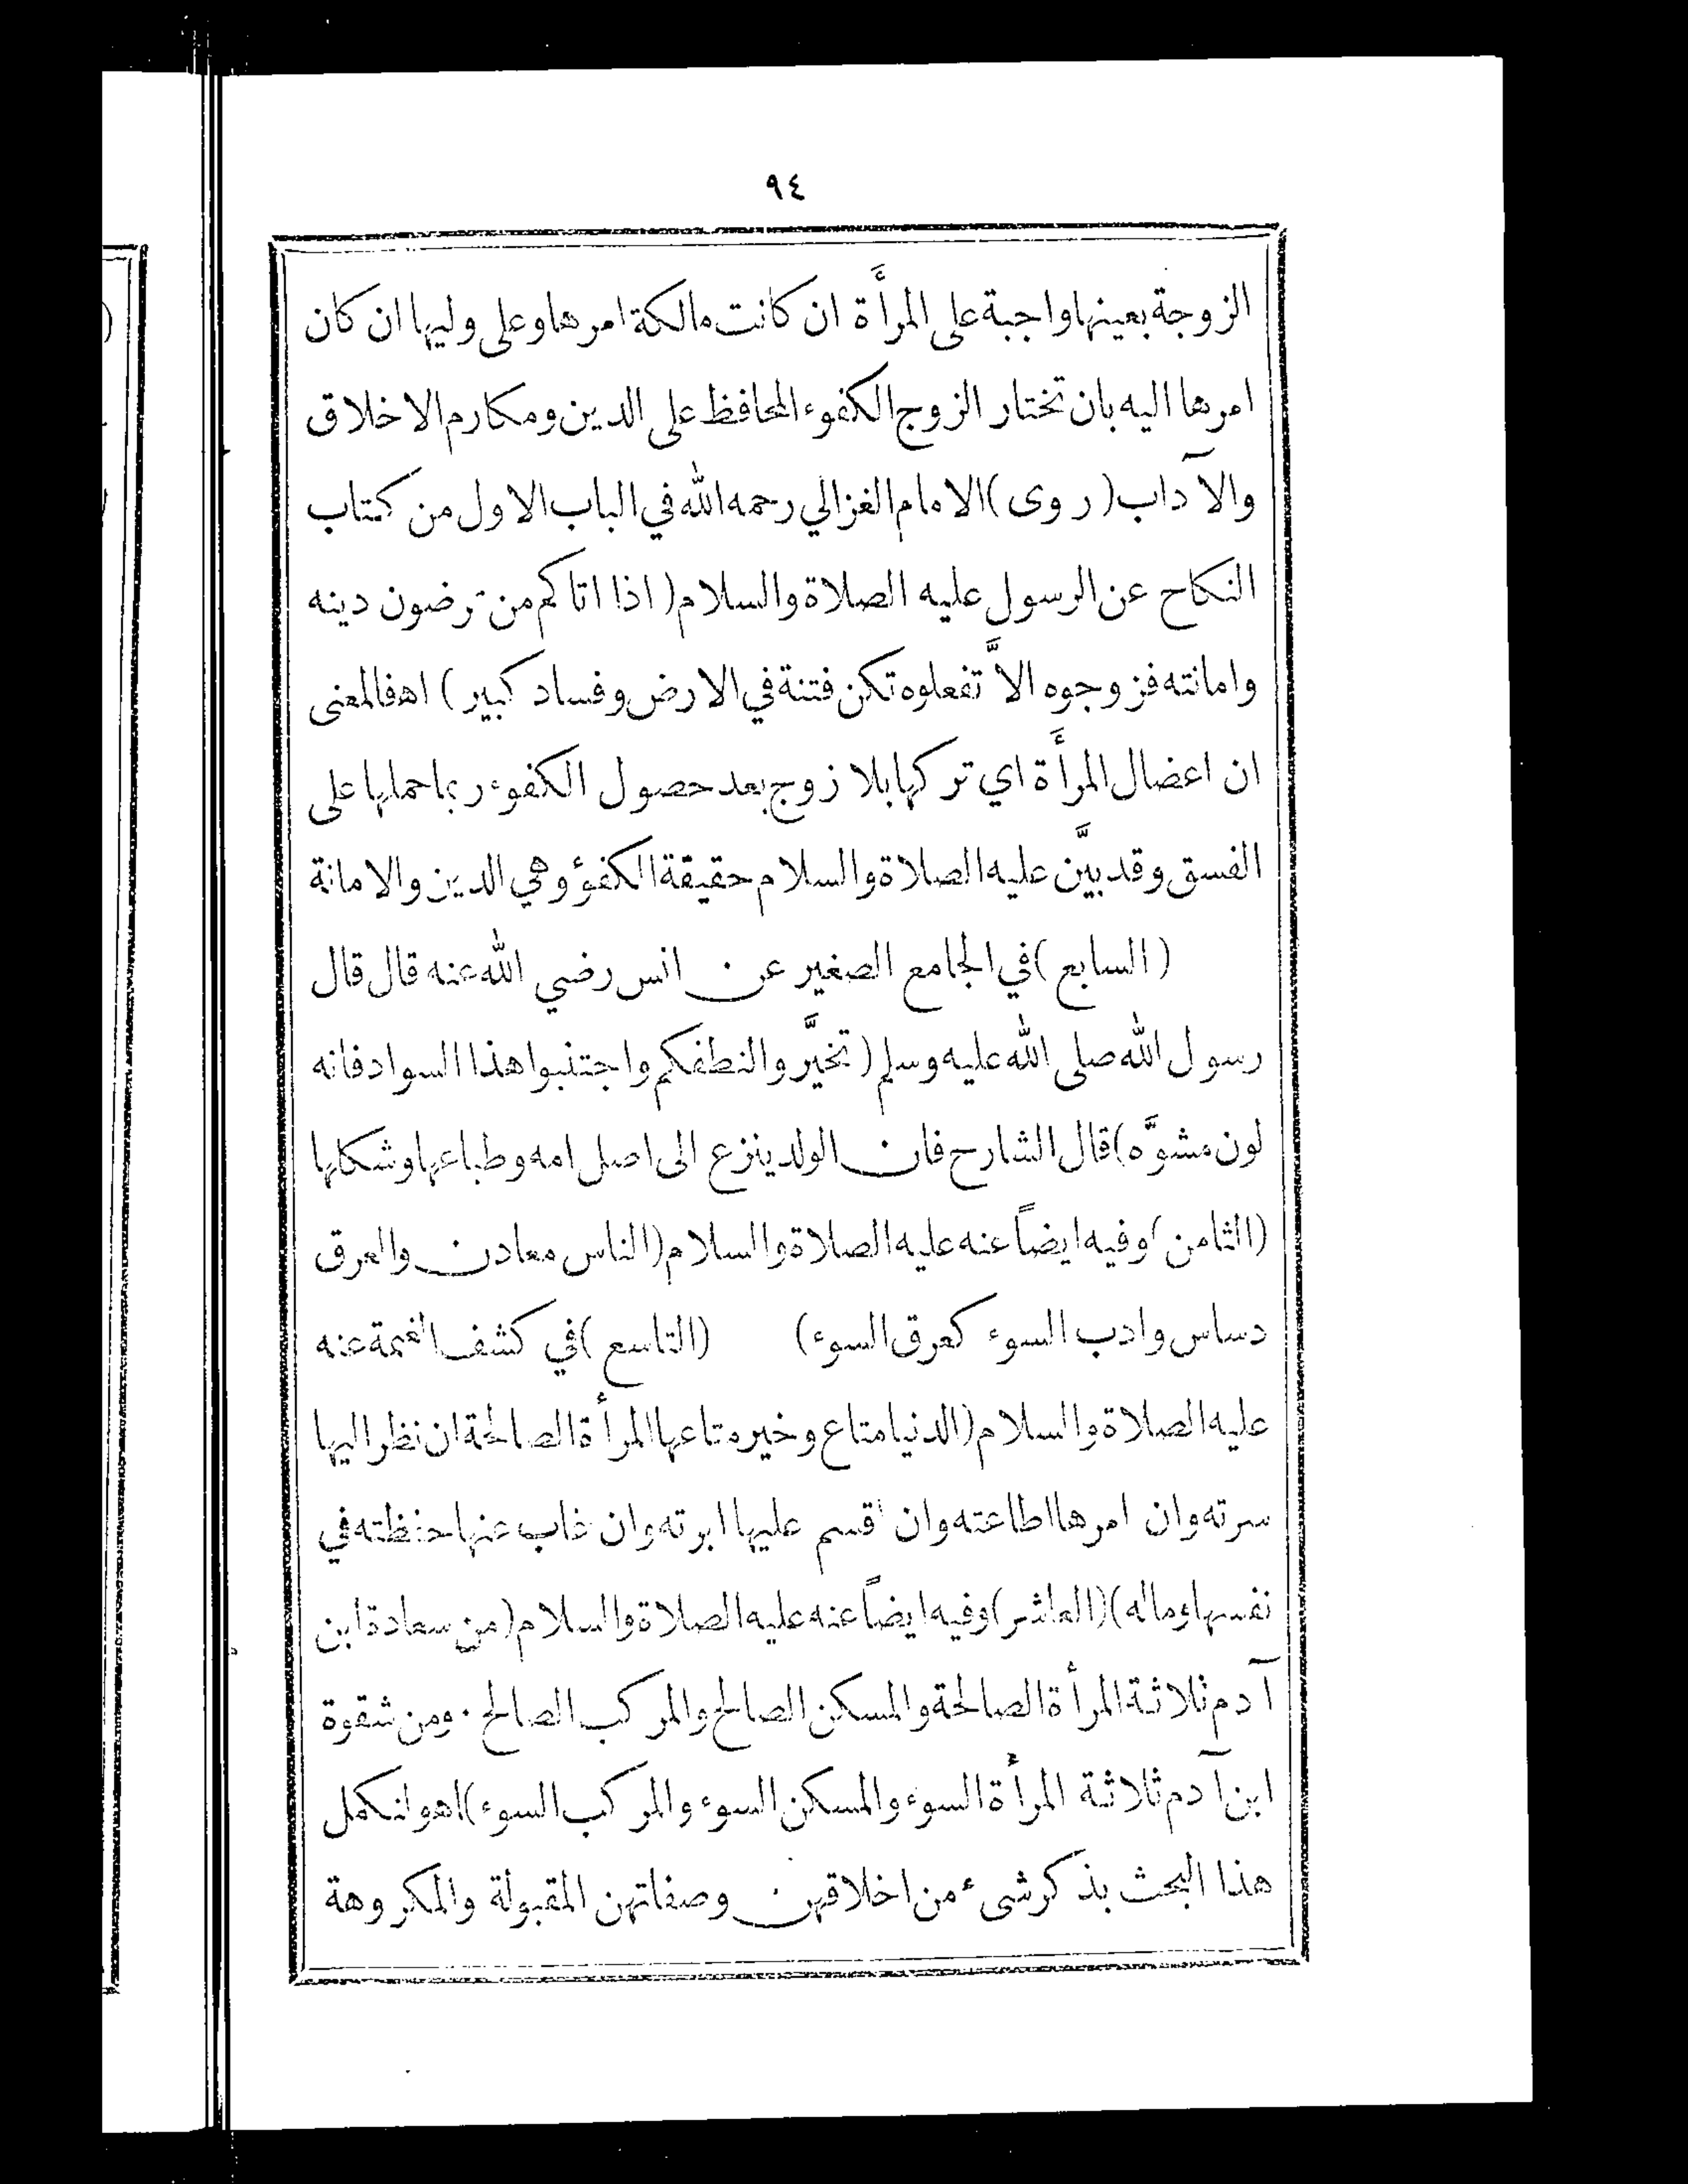 ٩٤
الزوجة بعينها واجبة على المرأَة ان كانت مالكة امرها وعلى وليها ان كان
امرها اليه بان تختار الزوج الكفوء المحافظ على الدين ومكارم الاخلاق
والآداب (روى) الامام الغزالي رحمه الله في الباب الاول من كتاب
النكاح عن الرسول عليه الصلاة والسلام (اذا اتاكم من ترضون دينه
وامانته فزوجوه الاَّ تفعلوه تكن فتنة في الارض وفساد كبير) اه فالمعنى
ان اعضال المرأَة اي تركها بلا زوج بعد حصول الكفوء ربما حملها على
الفسق وقد بيَّن عليه الصلاة والسلام حقيقة الكفؤ وهي الدين والامانة
(السابع) في الجامع الصغير عن انس رضي الله عنه قال قال
رسول الله صلى الله عليه وسلم (تخيَّروا لنطفكم واجتنبوا هذا السواد فانه
لون مشوَّه) قال الشارح فان الولد ينزع الى اصل امه وطباعها وشكلها
(الثامن) وفيه ايضاً عنه عليه الصلاة والسلام (الناس معادن والعرق
دساس وادب السوء كعرق السوء) (التاسع) في كشف الغمة عنه
عليه الصلاة والسلام (الدنيا متاع وخير متاعها المرأة الصالحة ان نظر اليها
سرته وان امرها اطاعته وان اقسم عليها ابرته وان غاب عنها حفظته في
نفسها وماله) (العاشر) وفيه ايضاً عنه عليه الصلاة والسلام (من سعادة ابن
آدم ثلاثة المرأة الصالحة والمسكن الصالح والمركب الصالح . ومن شقوة
ابن آدم ثلاثة المرأة السوء والمسكن السوء والمركب السوء) اه ولنكمل
هذا البحث بذكر شيء من اخلاقهن وصفاتهن المقبولة والمكروهة